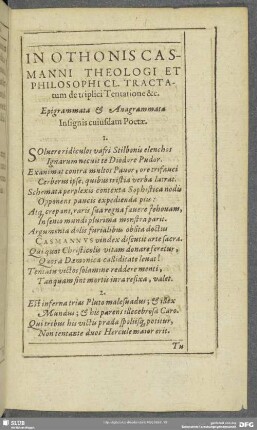 IN OTHONIS CAS-
MANNI THEOLOGI ET
PHILOSOPHI CL. TRACTA-
tum de triplici Tentatione &c.
Epigrammata & Anagrammata
Insignis cuiusdam Poetæ.
1.
SOluere ridiculos vafri Stilbonis elenchos
Ignarum necuit te Diodore Pudor.
Exanimat contra multos Pauor, ore trifauci
Cerberus ipse, quibus tristia verba latrat.
Schemata perplexis contexta Sophistica nodis
Opponens paucis expedienda piis:
Atq, crepant, raris sua regna fauere Iehouam,
In sensu mundi plurima monstra parit.
Argumenta dolis furialibus obsita doctus
CASMANNVS vindex discutit arte sacra.
Qui quos Christicolis vitam donare feretur,
Quos à Dæmonica calliditate leuat!
Tentatu victos solamine reddere menti,
Tanquam sint mortis intra resina, valet.
2.
Est inferna trias Pluto malesuadus; & isthæc
Mundus; & his parens illecebrosa Caro.
Qui tribus his victu præda spoliisq, potitur,
Non tentante duos Hercule maior erit.
Tu